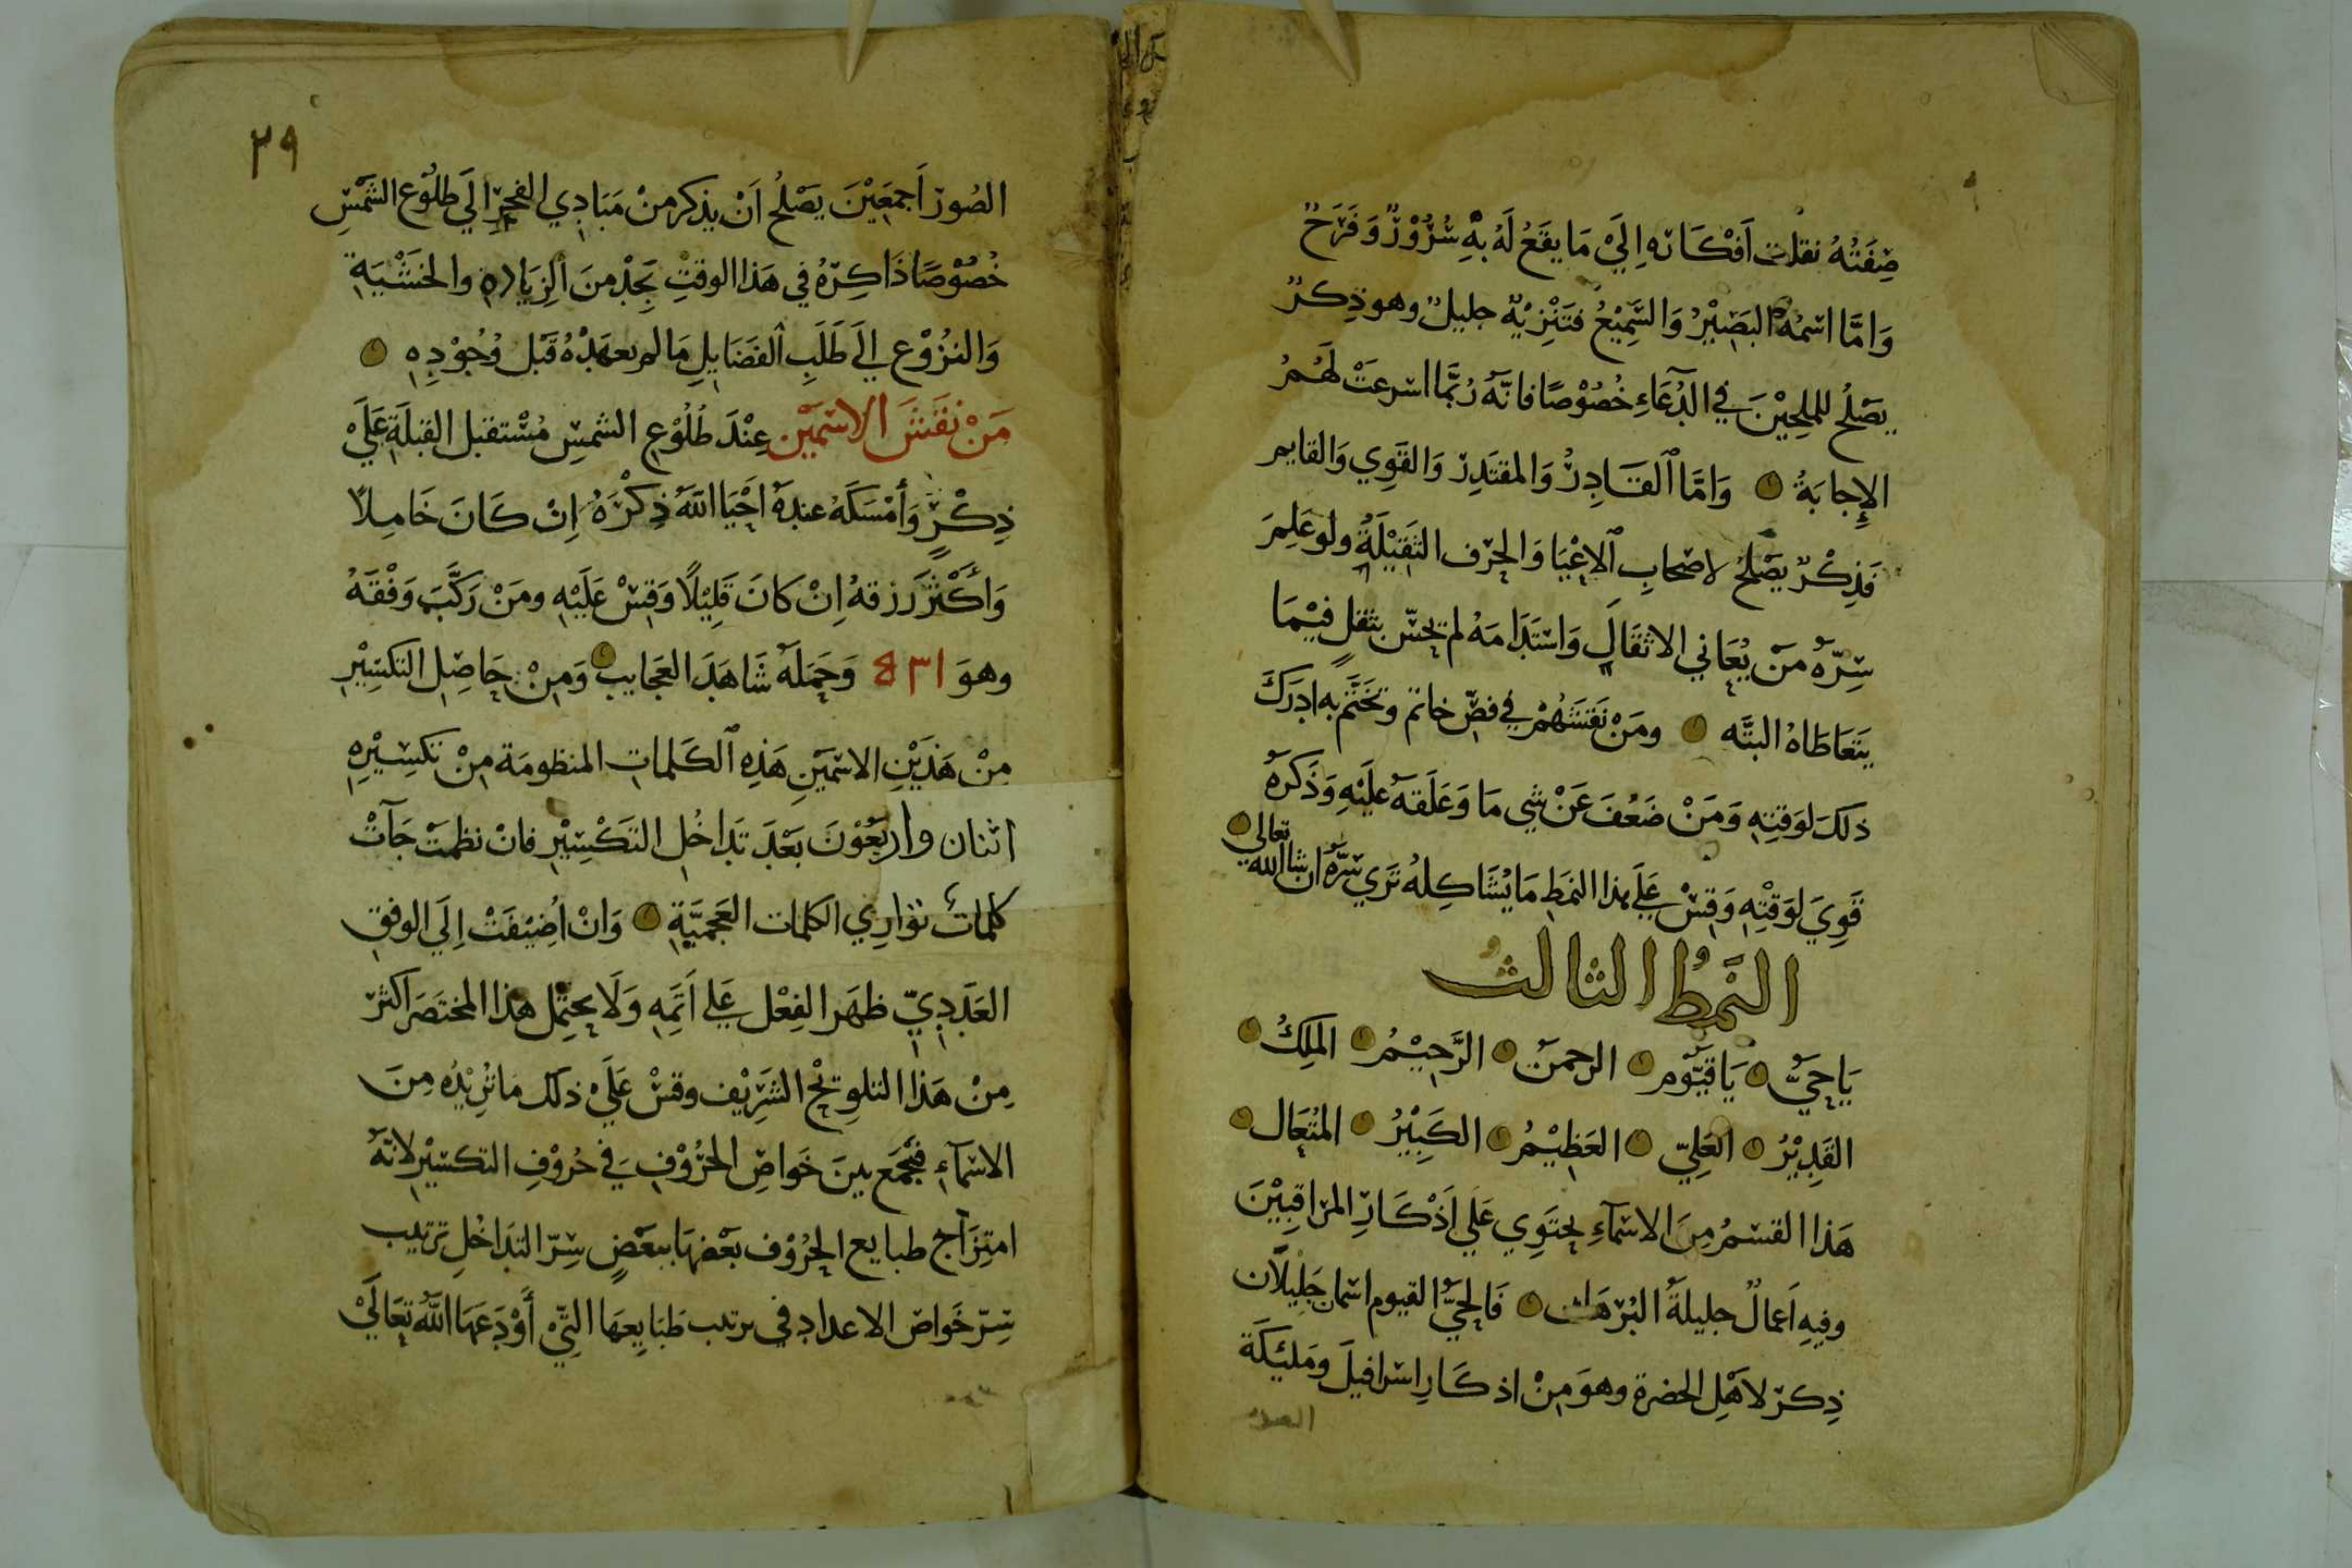 صِفَتُهُ نقلت اَفْكَاره اِلَيْ مَا يقَعُ لَهُ بِهِ سُرُوْرٌ وَفَرَحٌ
وَامَّا اسْمُهُ البَصِيْرُ وَالسَّمِيْعُ فتَنْزِيْهٌ جليلٌ وهو ذِكرٌ
يصَلُح للملحِيْنَ في الدُّعَاءِ خُصُوْصًا فانَّهُ رُبَّمَا اسرعَتْ لَهُمُ
الإِجابَةُ وَامَّا القَادِرُ وَالمقتَدِرُ وَالقَوِي وَالقايم
فَذِكْرٌ يصْلحُ لاصْحابِ الاعْيَا وَالحِرَف الثَّقِيْلَةِ ولَو عَلِمَ
سِرّهُ مَنْ يُعَاني الاثقَالِ وَاسْتَدَامَهُ لم يحسّ بثقلٍ فيْمَا
يَتَعَاطَاهُ البتَّه ومَنْ نَقَشَهُمْ في فصّ خاتم وتَخَتَّم به ادرَكَ
ذلكَ لوَقتِهِ وَمَنْ ضَعُفَ عَنْ شي مَا وَعَلقَهُ عليْهِ وَذَكَرَهُ
قَوِيَ لوَقْتِهِ وَقِسْ عَلَي هذا النمَطِ مَا يُشَاكِلهُ تَري سِرَّهُ ان شا الله تعالي
النَّمَطُ الثالثُ
يَا حَيُّ يَا قَيّوم الرحمن الرَّحِيْمُ المَلِكُ
القَدِيْرُ العَلِيّ العَظِيْمُ الكَبِيْرُ المُتعَال
هَذا القسْمُ مِنَ الاسْمآءِ يحتَوِي عَلَي اَذْكَارِ المرَاقِبِيْنَ
وفِيهِ اَعمالٌ جليلةُ البُرْهَان فَالحَيُّ القيوم اسمان جَلِيلاَن
ذِكرٌ لاَهْلِ الحضرة وهوَ مِنْ اذكَارِ اسرافيلَ ومَلئِكَة
الصور
٢٩
الصُورِ اَجمَعِيْنَ يَصْلحُ اَنْ يذكر منْ مَبَادِي الفجرِ الَي طلُوْع الشَّمْسِ
خُصُوْصًا ذَاكِرهُ في هَذا الوقتِ يَجِدْ منَ الزِيَادةِ والخَشْيَةِ
وَالنزُوْع الَي طَلَبِ الفَضَايِلِ مَا لم يعهَدْهُ قَبْل وُجُوْدِهِ
مَنْ نَقَشَ الاسْمَيْن عِنْدَ طُلُوْعِ الشمسِ مُسْتقبل القبلَةِ عَلَيْ
ذِكْرٍ وَأَمْسَكَهُ عندهُ اَحْيَا اللهُ ذِكْرَهُ اِنْ كَانَ خَامِلاً
وَأَكْثَرَ رَزقهُ اِنْ كانَ قَلِيْلاً وَقِسْ عَلَيْهِ ومَنْ رَكَّبَ وَفْقَهُ
وهوَ وَحَمَلهُ شَاهَدَ العَجَايب وَمِنْ حَاصِلِ التكسِيْرِ
مِنْ هَذَيْنِ الاسْمَيَنِ هَذِهِ الكَلمات المنظومَة مِنْ تكسِيْرِهِ
اثنان واربَعُوْنَ بَعْدَ تَدَاخُلِ التَكْسِيْرِ فانْ نظمَتْ جَآتْ
كلمات توَارِي الكلمات العَجميَّةِ وَانْ اُضِيْفَتْ اِلَي الوفق
العَدَدِيّ ظهَر الفِعْل عَلي اَتَمِّهِ وَلَا يحتَمِل هذا المختَصَر اكثر
مِنْ هَذا التلويْح الشَرِيْف وقسْ عَلَيْ ذلك ماتُرِيْدُه مِنَ
الاسْمآءِ فتجْمَع بينَ خَواصّ الحرُوْفِ في حُرُوْفِ التكسيْرِ لانّهُ
امتِزَاج طبايع الحرُوْف بَعْضهَا ببعْضٍ سِرّ التدَاخُلِ ترتيب
سِرّ خَواصّ الاعداد في ترتيب طبَايعِهَا التّيْ أَوْدَعَهَا اللهُ تعَالَيْ